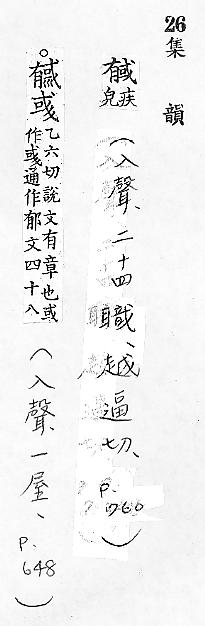 26 集韻
戫 疾皃 (入聲、二十四職、越逼切、p.760)
。彧 乙六切說文有章也或
作彧通作郁文四十八 (入聲一屋、p.648)